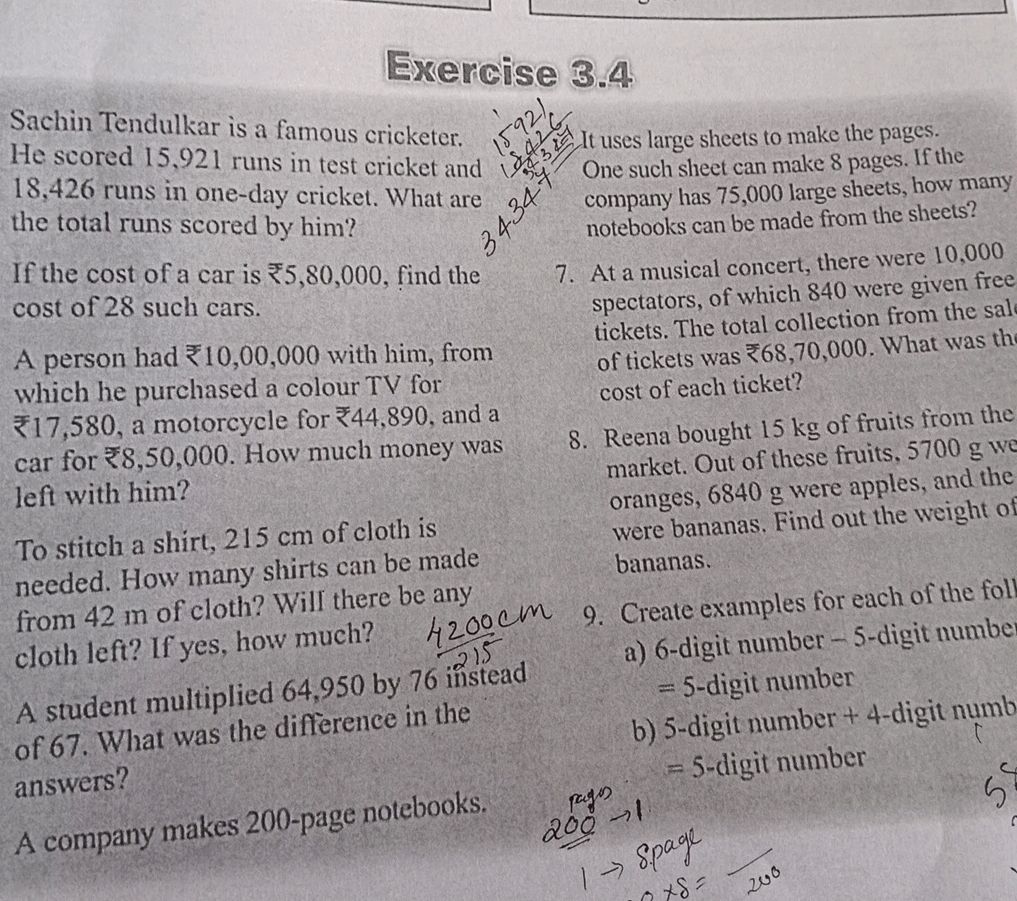 Exercise 3.4
Sachin Tendulkar is a famous cricketer.
He scored 15,921 runs in test cricket and
18,426 runs in one-day cricket. What are
the total runs scored by him?
15921
18426
34347
If the cost of a car is ₹5,80,000, find the
cost of 28 such cars.
A person had ₹10,00,000 with him, from
which he purchased a colour TV for
₹17,580, a motorcycle for ₹44,890, and a
car for ₹8,50,000. How much money was
left with him?
To stitch a shirt, 215 cm of cloth is
needed. How many shirts can be made
from 42 m of cloth? Will there be any
cloth left? If yes, how much?
4200cm
215
A student multiplied 64,950 by 76 instead
of 67. What was the difference in the
answers?
A company makes 200-page notebooks.
It uses large sheets to make the pages.
One such sheet can make 8 pages. If the
company has 75,000 large sheets, how many
notebooks can be made from the sheets?
7. At a musical concert, there were 10,000
spectators, of which 840 were given free
tickets. The total collection from the
of tickets was ₹68,70,000. What was
cost of each ticket?
8. Reena bought 15 kg of fruits from the
market. Out of these fruits, 5700 g
oranges, 6840 g were apples, and the
were bananas. Find out the weight of
bananas.
9. Create examples for each of the
a) 6-digit number – 5-digit
= 5-digit number
b) 5-digit number + 4-digit
= 5-digit number
pages
200 → 1
1 → 8 page
×8 =
200